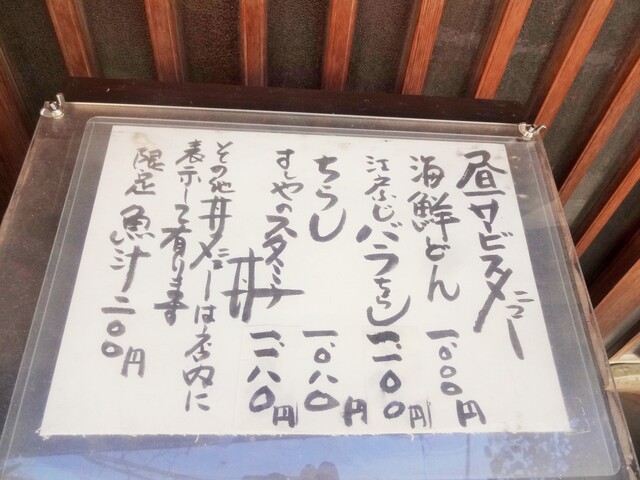 昼サービスメニュー
海鮮どん 一、〇〇〇円
江戸ふじバラちらし 一、一〇〇円
ちらし 一、〇八〇円
すしやのスタミナ丼 一、一八〇円
その他丼メニューは店内に
表示して有ります
限定 魚汁 二〇〇円